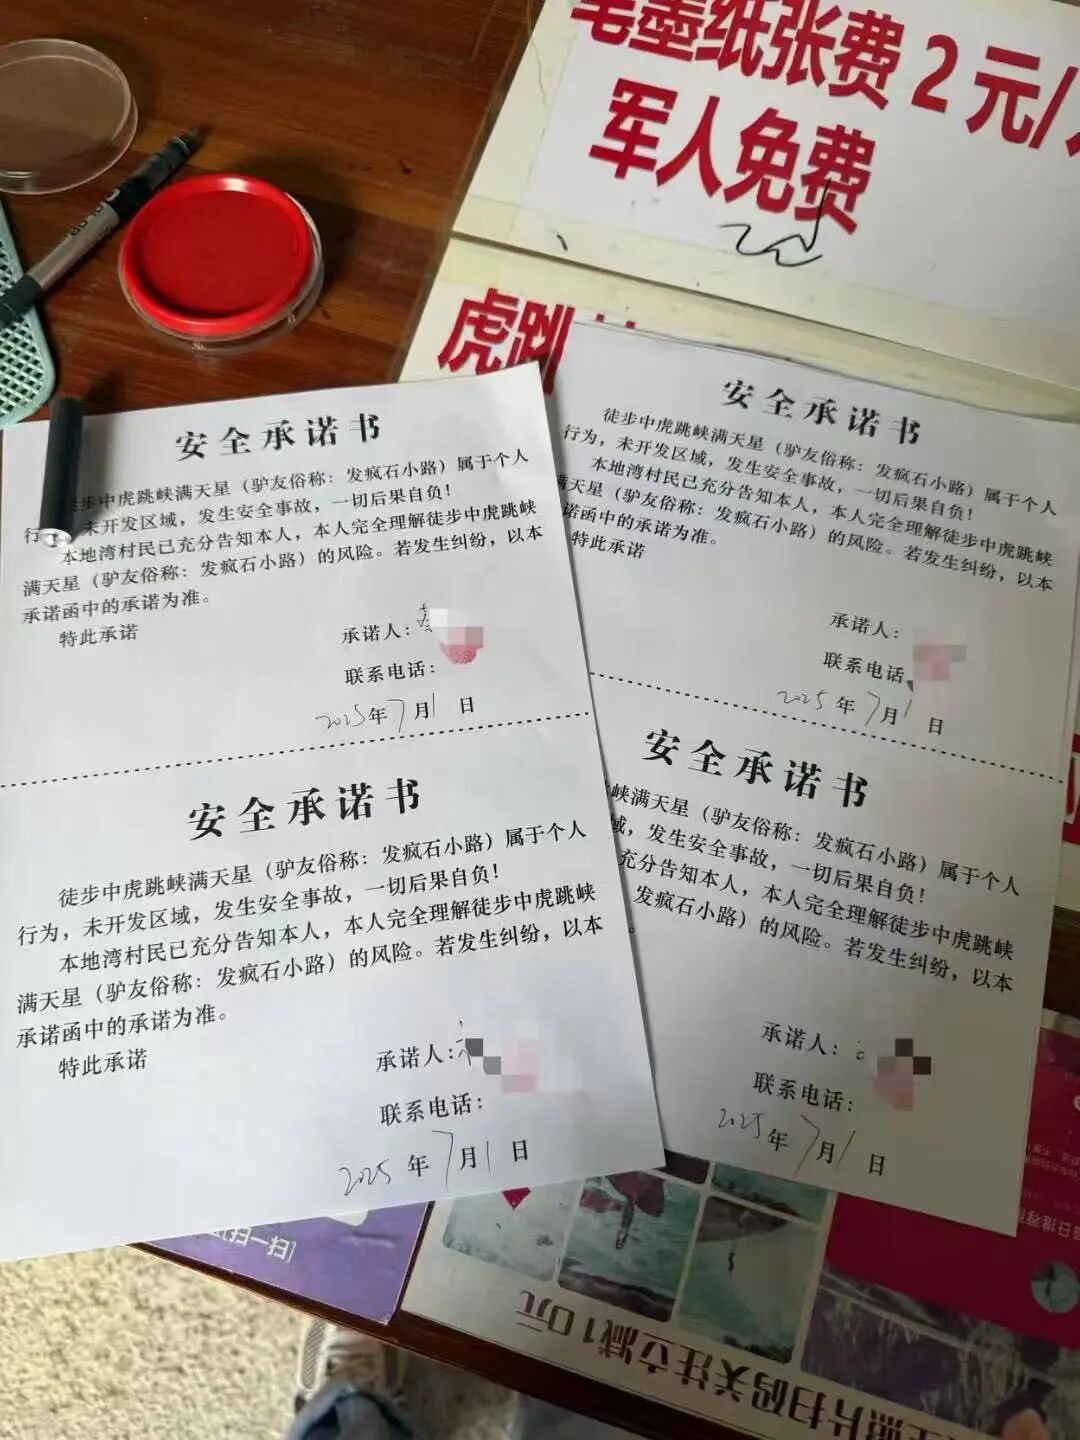 笔墨纸张费2元/
军人免费
虎跳
安全承诺书
步中虎跳峡满天星（驴友俗称：发疯石小路）属于个人
行，未开发区域，发生安全事故，一切后果自负！
本地湾村民已充分告知本人，本人完全理解徒步中虎跳峡
满天星（驴友俗称：发疯石小路）的风险。若发生纠纷，以本
承诺函中的承诺为准。
特此承诺
承诺人：
联系电话：
2025年7月1日
安全承诺书
徒步中虎跳峡满天星（驴友俗称：发疯石小路）属于个人
行为，未开发区域，发生安全事故，一切后果自负！
本地湾村民已充分告知本人，本人完全理解徒步中虎跳峡
满天星（驴友俗称：发疯石小路）的风险。若发生纠纷，以本
承诺函中的承诺为准。
特此承诺
承诺人：
联系电话：
2025年7月1日
安全承诺书
徒步中虎跳峡满天星（驴友俗称：发疯石小路）属于个人
行为，未开发区域，发生安全事故，一切后果自负！
本地湾村民已充分告知本人，本人完全理解徒步中虎跳峡
满天星（驴友俗称：发疯石小路）的风险。若发生纠纷，以本
诺函中的承诺为准。
特此承诺
承诺人：
联系电话
2025年7月1日
安全承诺书
峡满天星（驴友俗称：发疯石小路）属于个人
域，发生安全事故，一切后果自负！
充分告知本人，本人完全理解徒步中虎跳峡
发疯石小路）的风险。若发生纠纷，以本
承诺人：
联系电话：
2025年7月1日
扫一扫]
照片扫码关注立减10元
日推荐